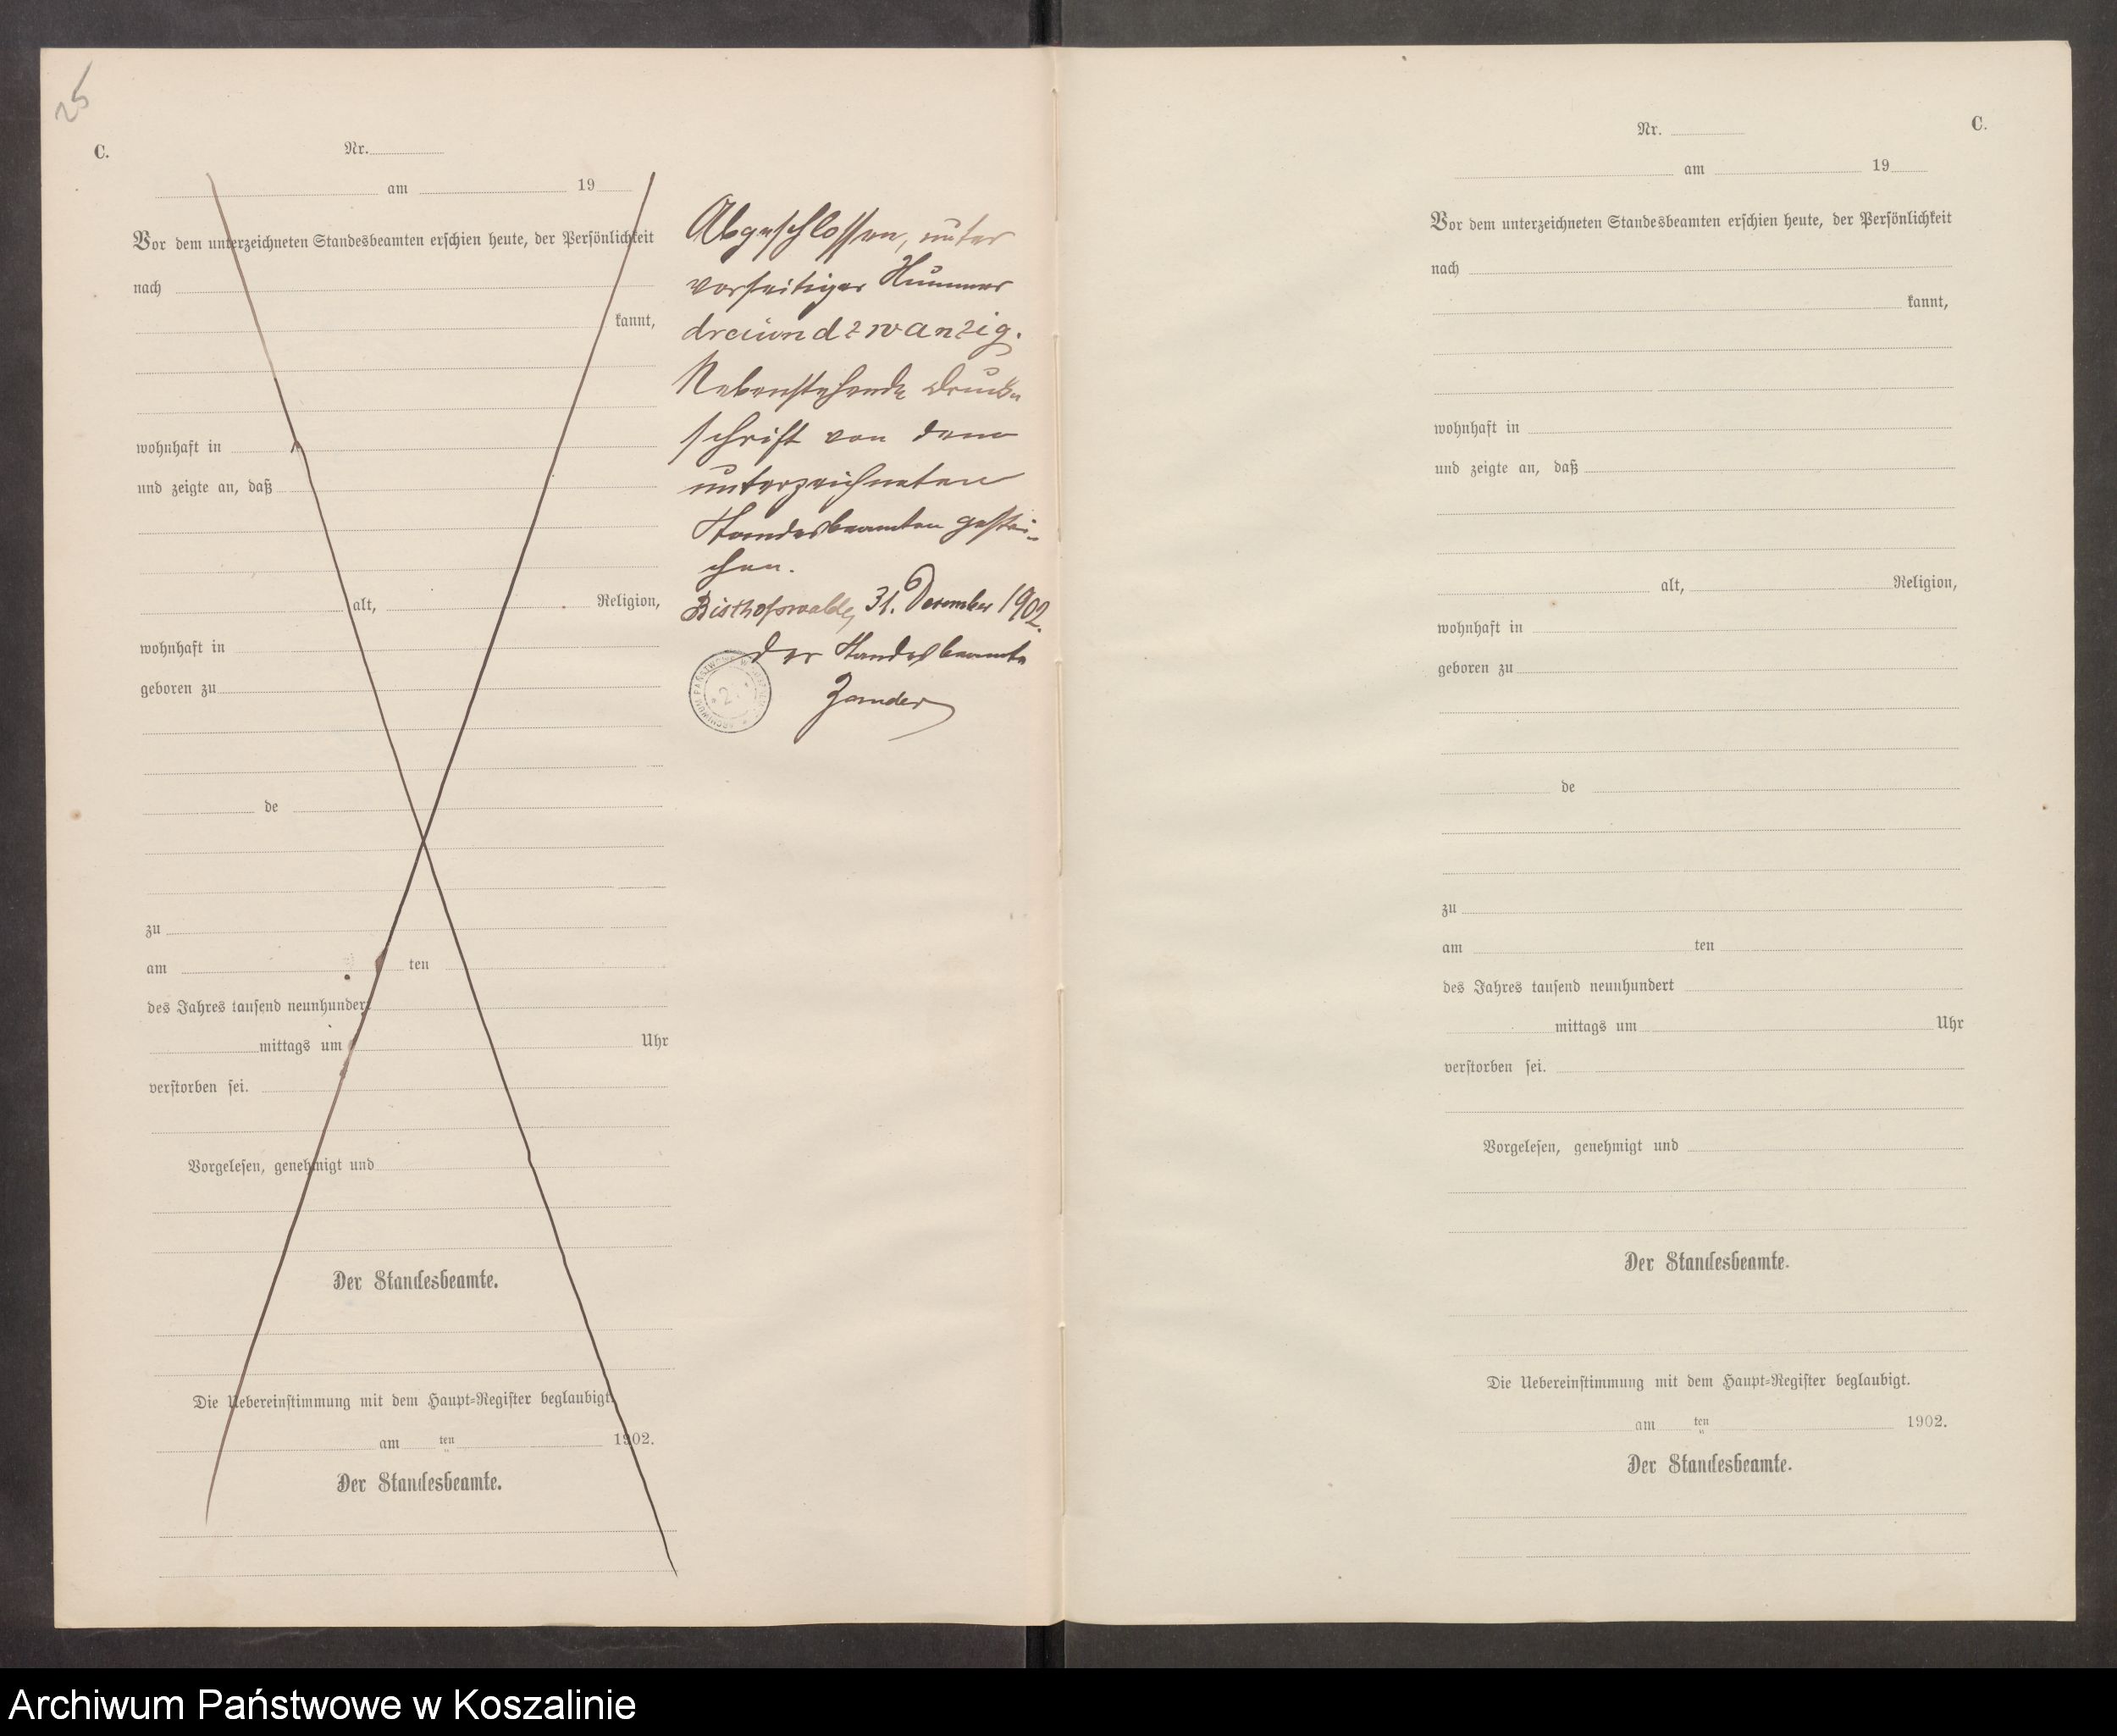 25
C.
Nr.
am 19
Vor dem unterzeichneten Standesbeamten erschien heute, der Persönlichkeit
nach
kannt,
wohnhaft in
und zeigte an, daß
alt, Religion,
wohnhaft in
geboren zu
de
zu
am ten
des Jahres tausend neunhundert
mittags um Uhr
verstorben sei.
Vorgelesen, genehmigt und
Der Standesbeamte.
Die Uebereinstimmung mit dem Haupt-Register beglaubigt.
am ten 1902.
Der Standesbeamte.
Abgeschlossen, unter
vorseitiger Nummer
dreiundzwanzig.
Nebenstehende Druck-
schrift von dem
unterzeichneten
Standesbeamten gestri-
chen.
Bischofswalde, 31. Dezember 1902.
Der Standesbeamte
Zander
ARCHIWUM PAŃSTWOWE W
2
Nr. C.
am 19
Vor dem unterzeichneten Standesbeamten erschien heute, der Persönlichkeit
nach
kannt,
wohnhaft in
und zeigte an, daß
alt, Religion,
wohnhaft in
geboren zu
de
zu
am ten
des Jahres tausend neunhundert
mittags um Uhr
verstorben sei.
Vorgelesen, genehmigt und
Der Standesbeamte.
Die Uebereinstimmung mit dem Haupt-Register beglaubigt.
am ten 1902.
Der Standesbeamte.
Archiwum Państwowe w Koszalinie